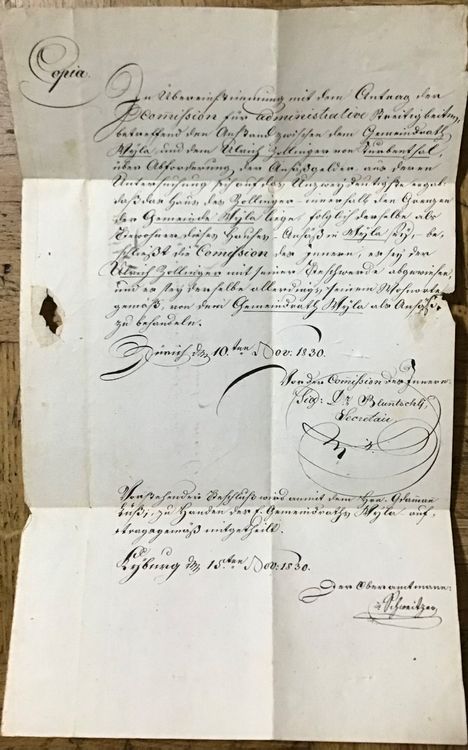 Copia.
In Übereinstimmung mit dem Antrag der
Comission für administrative Streitigkeiten,
betreffend den Anstand zwischen dem Gemeindrath
Wyla und dem Ulrich Zollinger von Turbenthal,
über Abforderung der Ansäßgelder, aus deren
Untersuchung sich auf das Unzweydeutigste ergab:
daß das Haus des Zollinger innerhalb den Grenzen
der Gemeinde Wyla liege, folglich derselbe als
Bewohner dieses Hauses Ansäß in Wyla sey, be-
schließt die Comission des Innern, es sey der
Ulrich Zollinger mit seiner Beschwerde abgewiesen,
und es sey derselbe allerdings, seinem Wohnorte
gemäß, von dem Gemeindrath Wyla als Ansäß
zu behandeln.
Zürich den 10.ten Nov: 1830.
Vor der Comission des Innern
Sig: Dr Bluntschli,
Secretair
Vorstehender Beschluß wird anmit dem Hrn.
zu Handen des l. Gemeindraths Wyla auf-
tragsgemäß mitgetheilt.
Kyburg den 15.ten Nov: 1830.
Der Oberamtmann:
Schweitzer